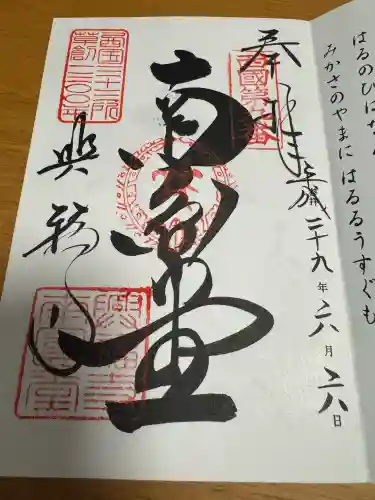 はるのひは
みかさのやまに はるるうすぐも
奉拝
平成二十九年六月二八日
西国第九番
南円堂
西国三十三所
草創一三〇〇年
興福寺
興福寺
南円堂